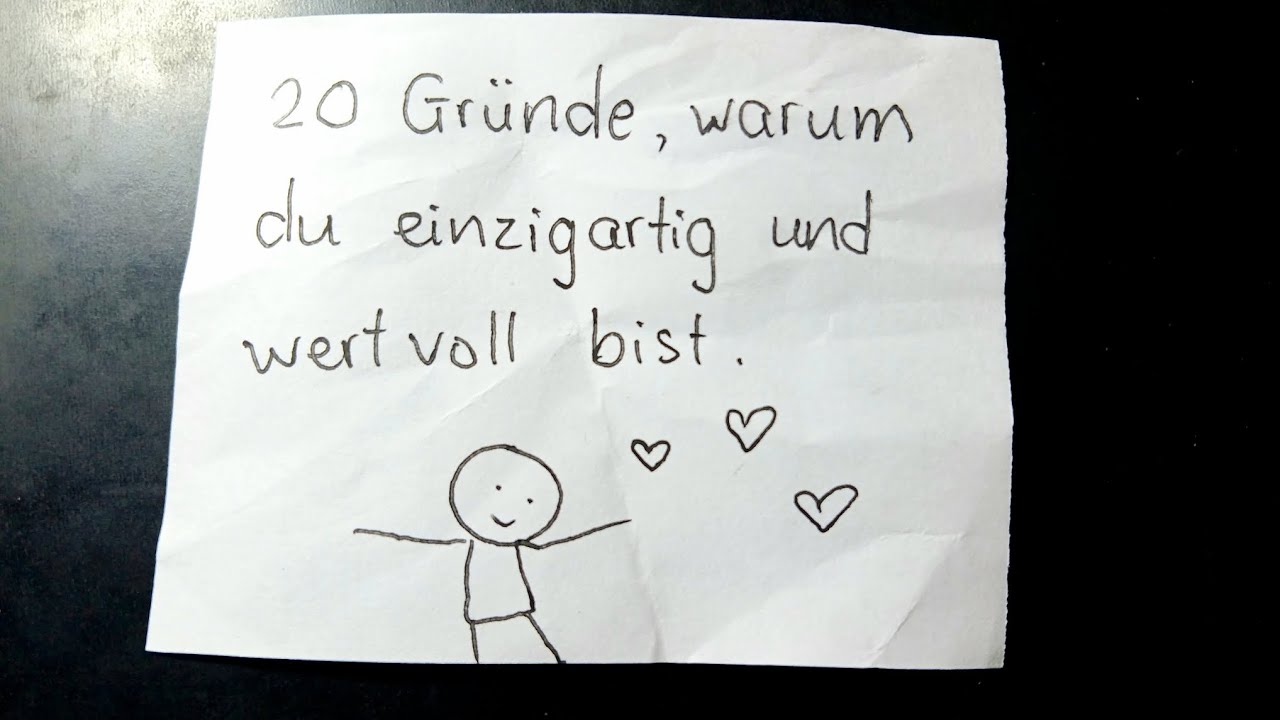 20 Gründe, warum
du einzigartig und
wertvoll bist.